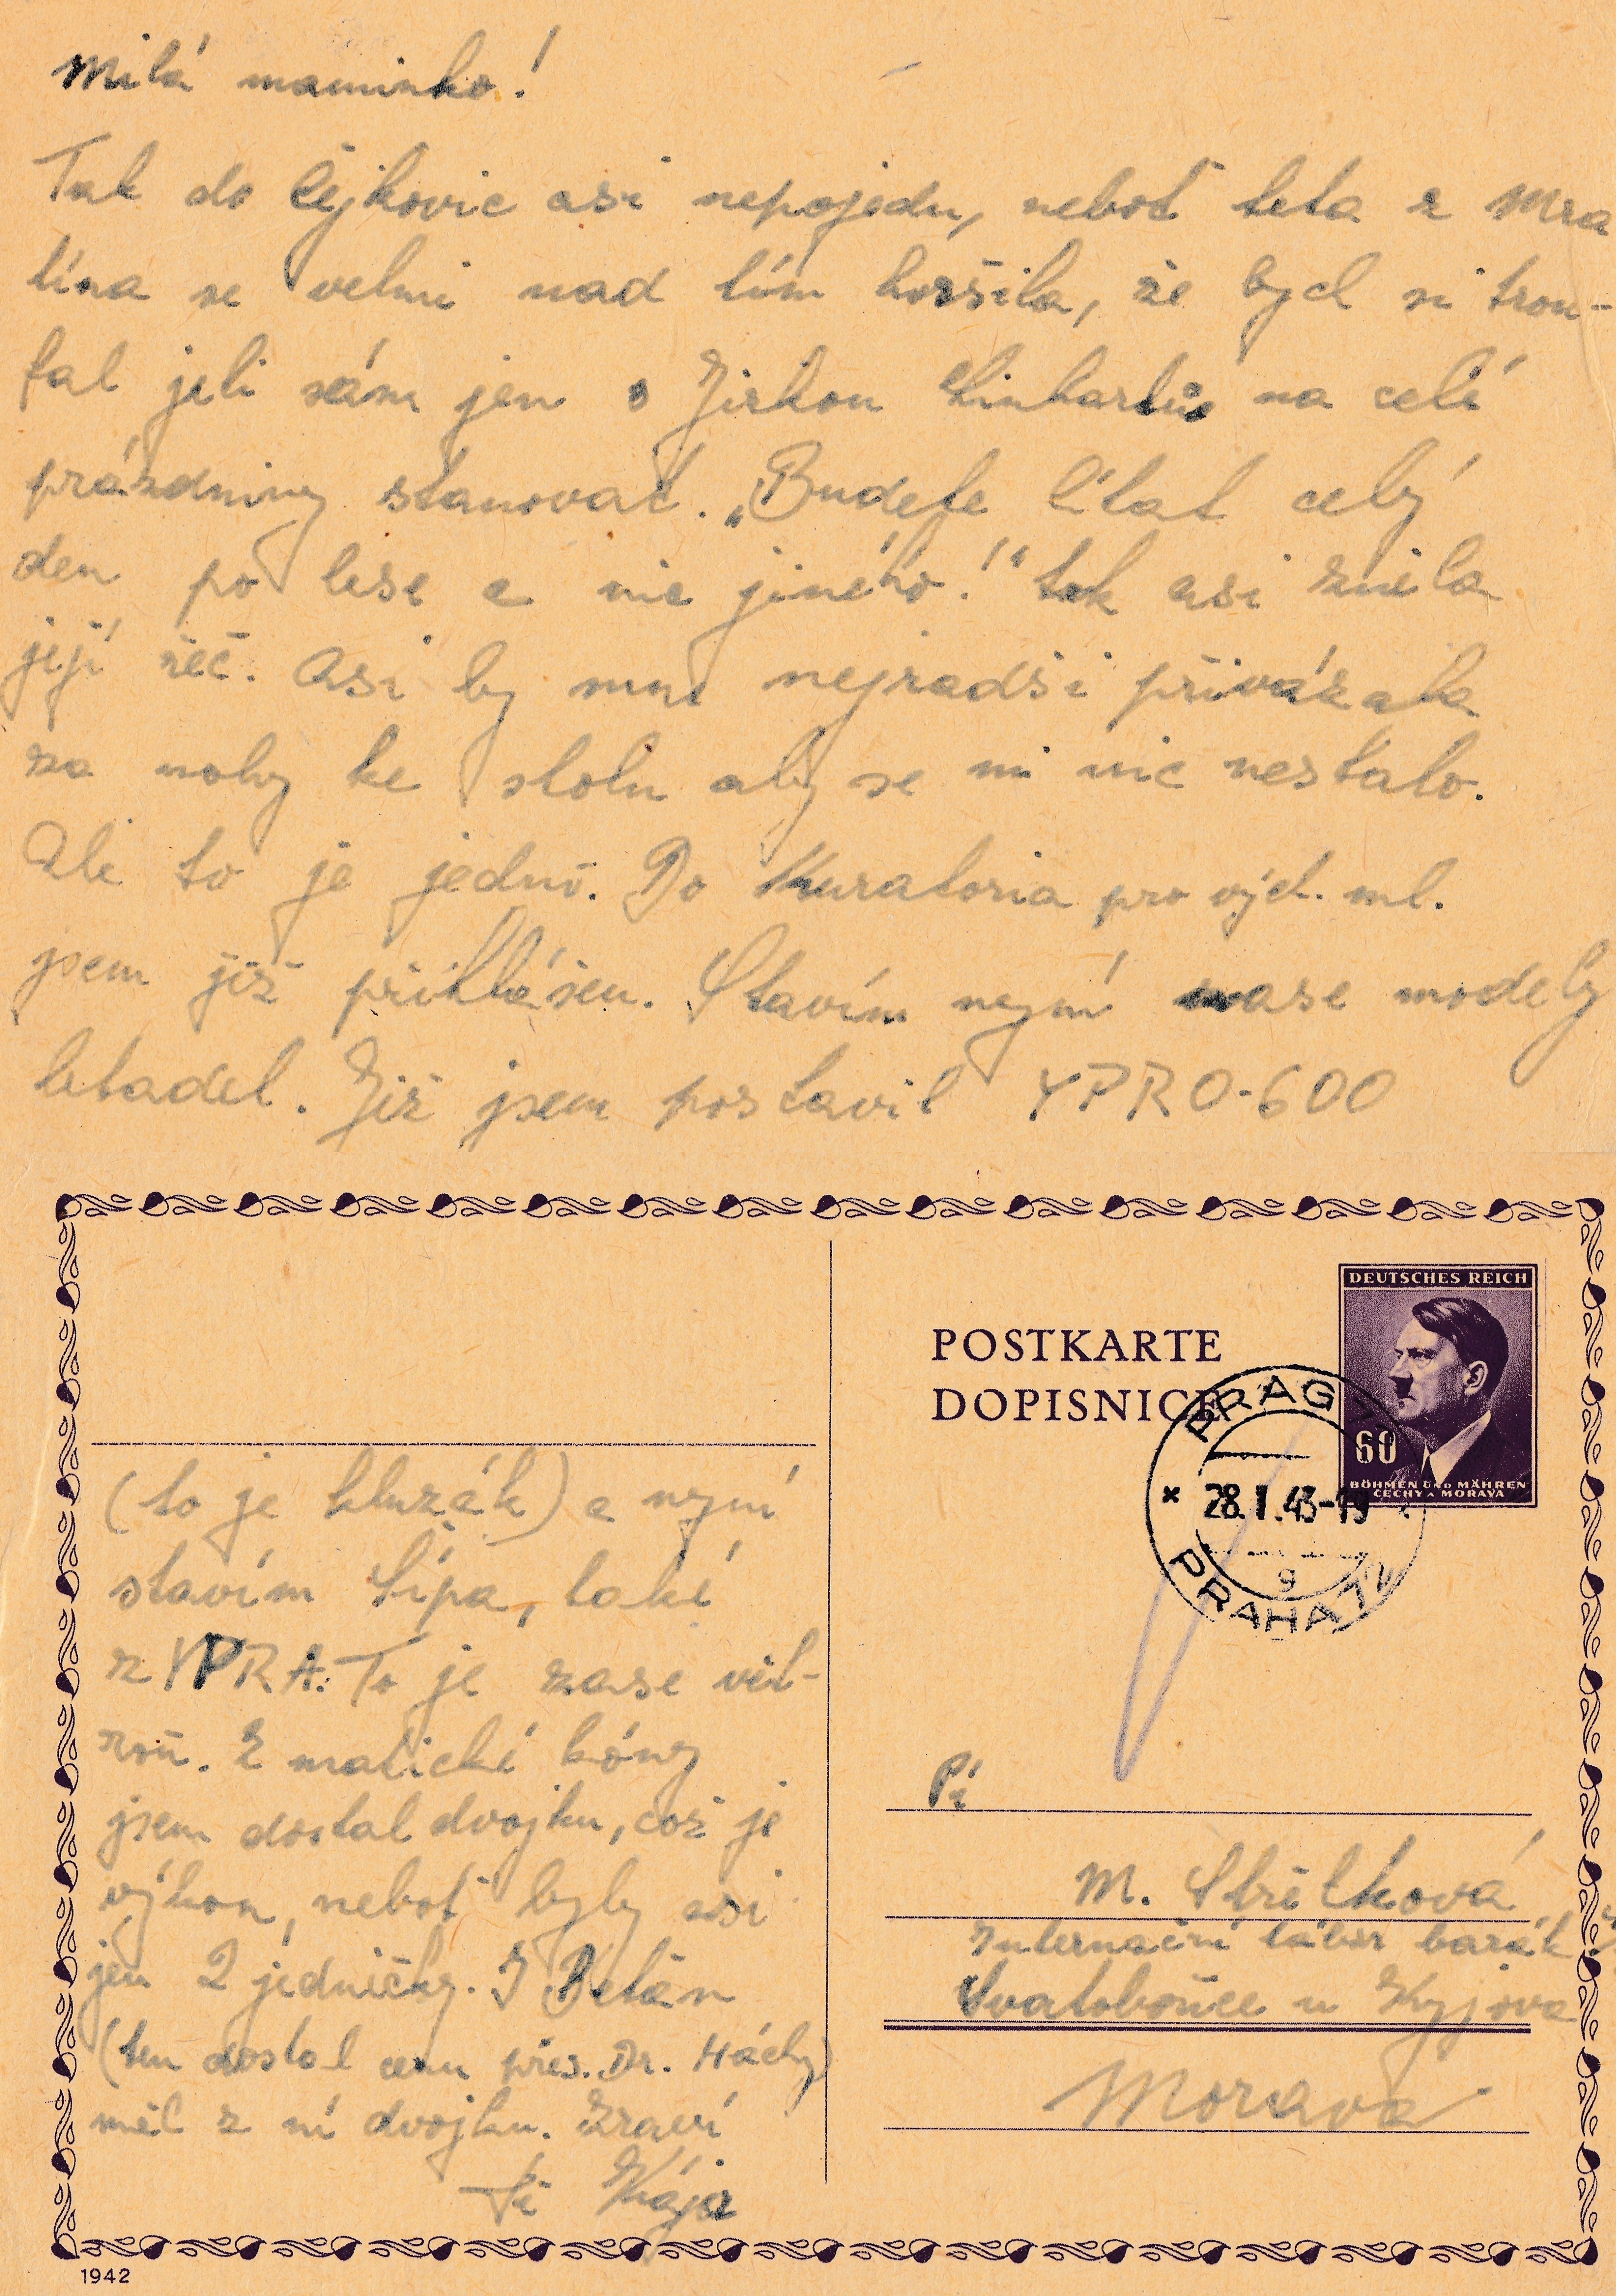 Milá maminko!
Tak do Čejkovic asi nepojedu, neboť teta z Mra
tína se velmi nad tím horšila, že bych si trou-
fal jeti sám jen s Jirkou Linhartů na celé
prázdniny stanovat. „Budete lítat celý
den po lese a nic jiného!“ tak asi zněla
její řeč. Asi by mne nejradši přivázala
za nohy ke stolu aby se mi nic nestalo.
Ale to je jedno. Do Kuratoria pro vých. ml.
jsem již přihlášen. Stavím nyní zase modely
letadel. Již jsem postavil YPRO-600
POSTKARTE
DOPISNICE
DEUTSCHES REICH
60
BÖHMEN UND MÄHREN
ČECHY A MORAVA
PRAG
28.I.43-19
9
PRAHA
(to je kluzák) a nyní
stavím Šípa, také
z YPRA. To je zase vět-
roň. Z matické kóny
jsem dostal dvojku, což je
výkon, neboť byly asi
jen 2 jedničky. I
(ten dostal cenu pres. Dr. Háchy)
měl z ní dvojku. Zdraví
Tě Kája
Pí
M. Střelková
Internační tábor barák
Svatobořice u Kyjova
Morava
1942